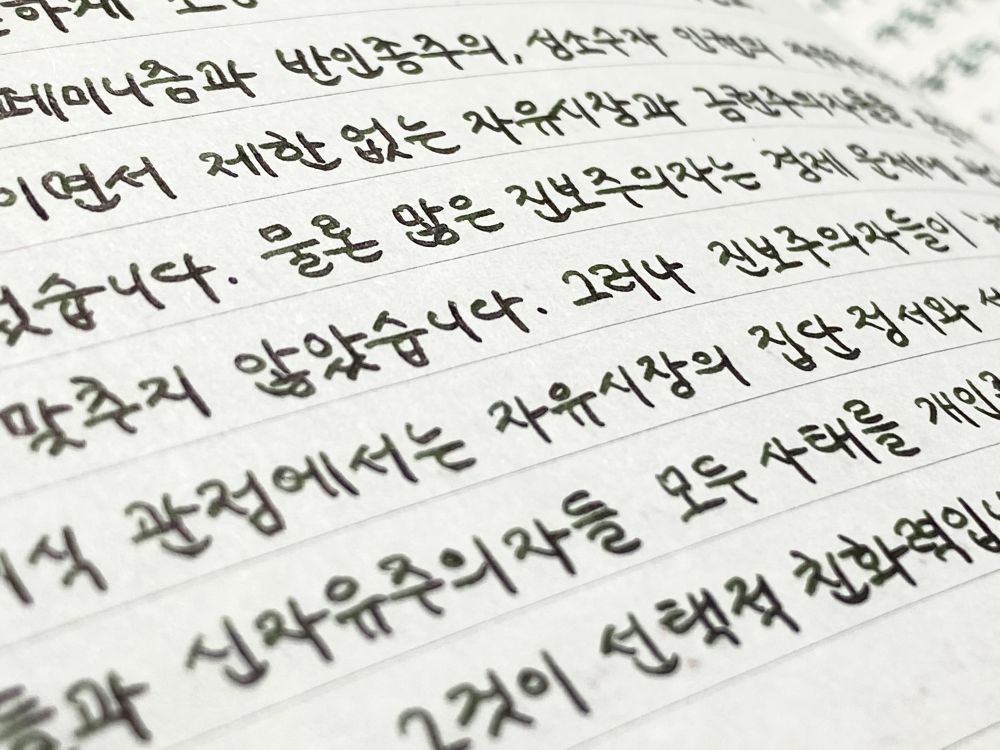 페미니즘과 반인종주의, 성소수자 인권의
이면서 제한 없는 자유시장과 금권주의자들을
물론 많은 진보주의자는 경제 문제에
맞추지 않았습니다. 그러나 진보주의자들이
관점에서는 자유시장의 집단 정서와
신자유주의자들 모두 사태를
그것이 선택적 친화력입니